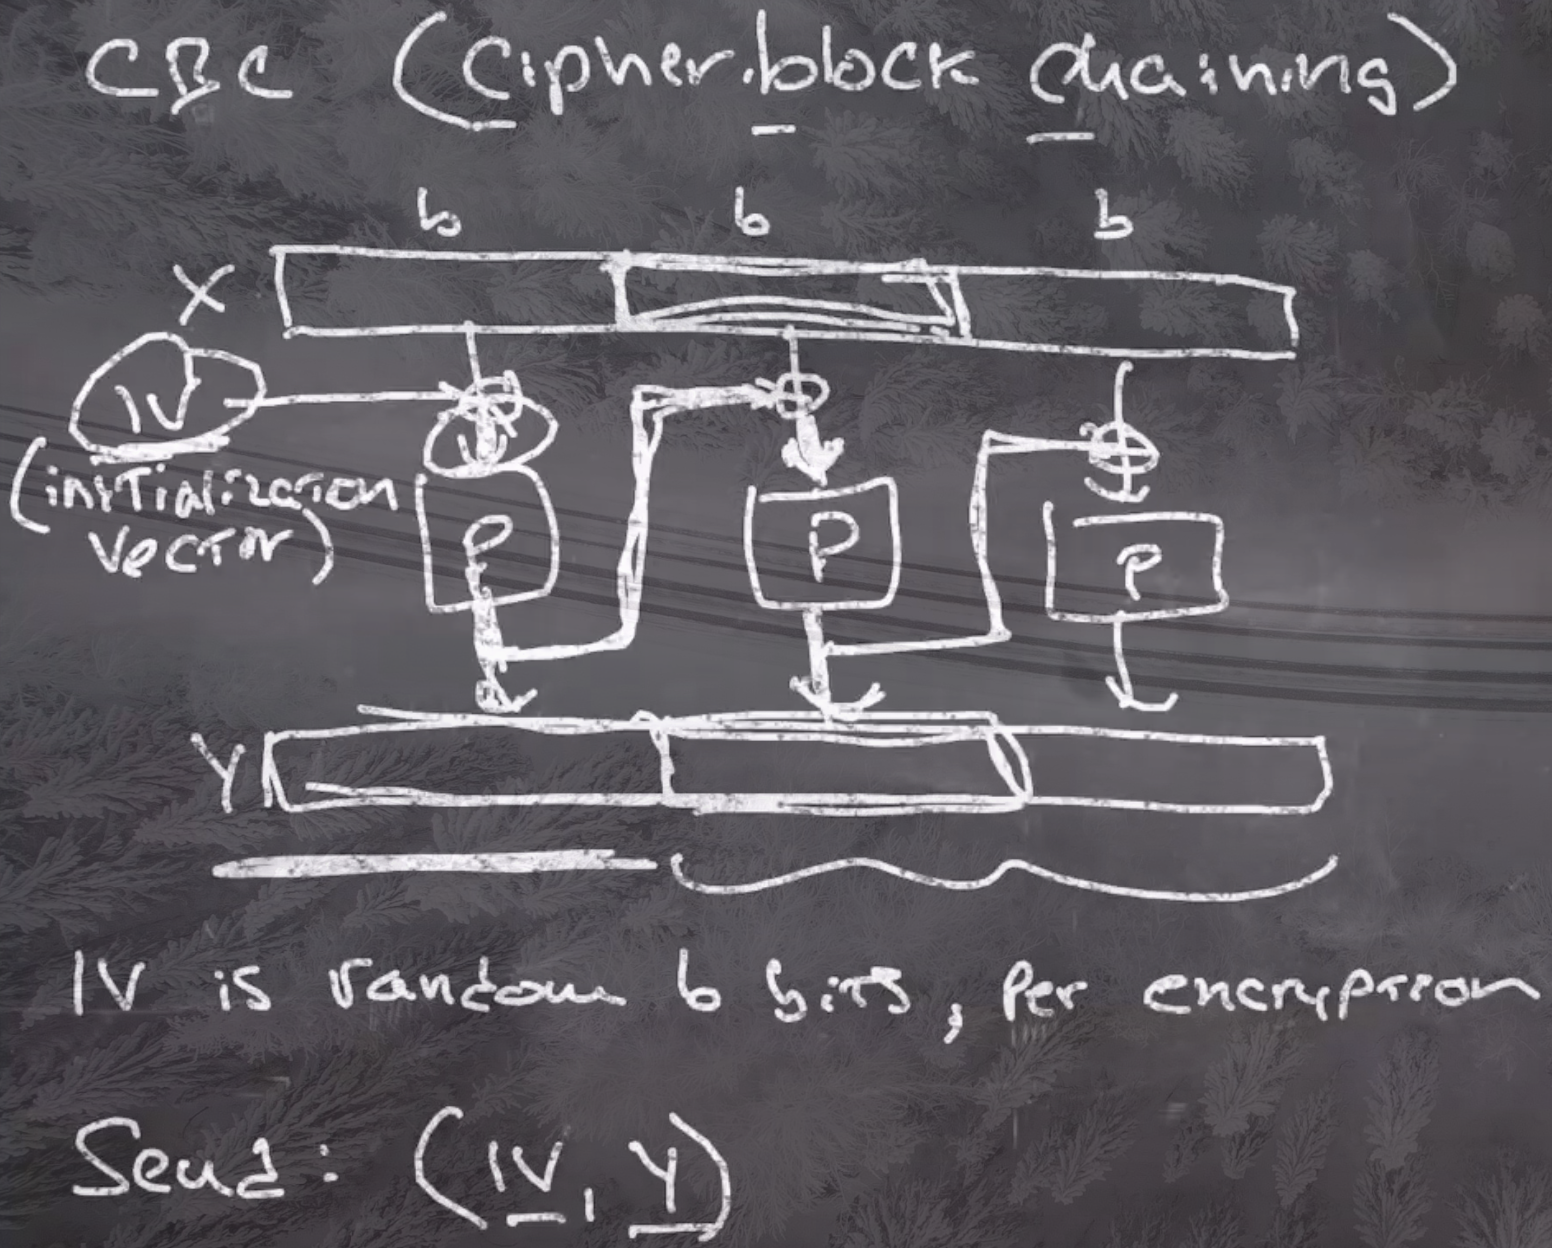 CBC (Cipher.block chaining)
b b b
X
IV
(initialization
vector)
P P P
Y
IV is random b bits, per encryption
Send: (IV, Y)